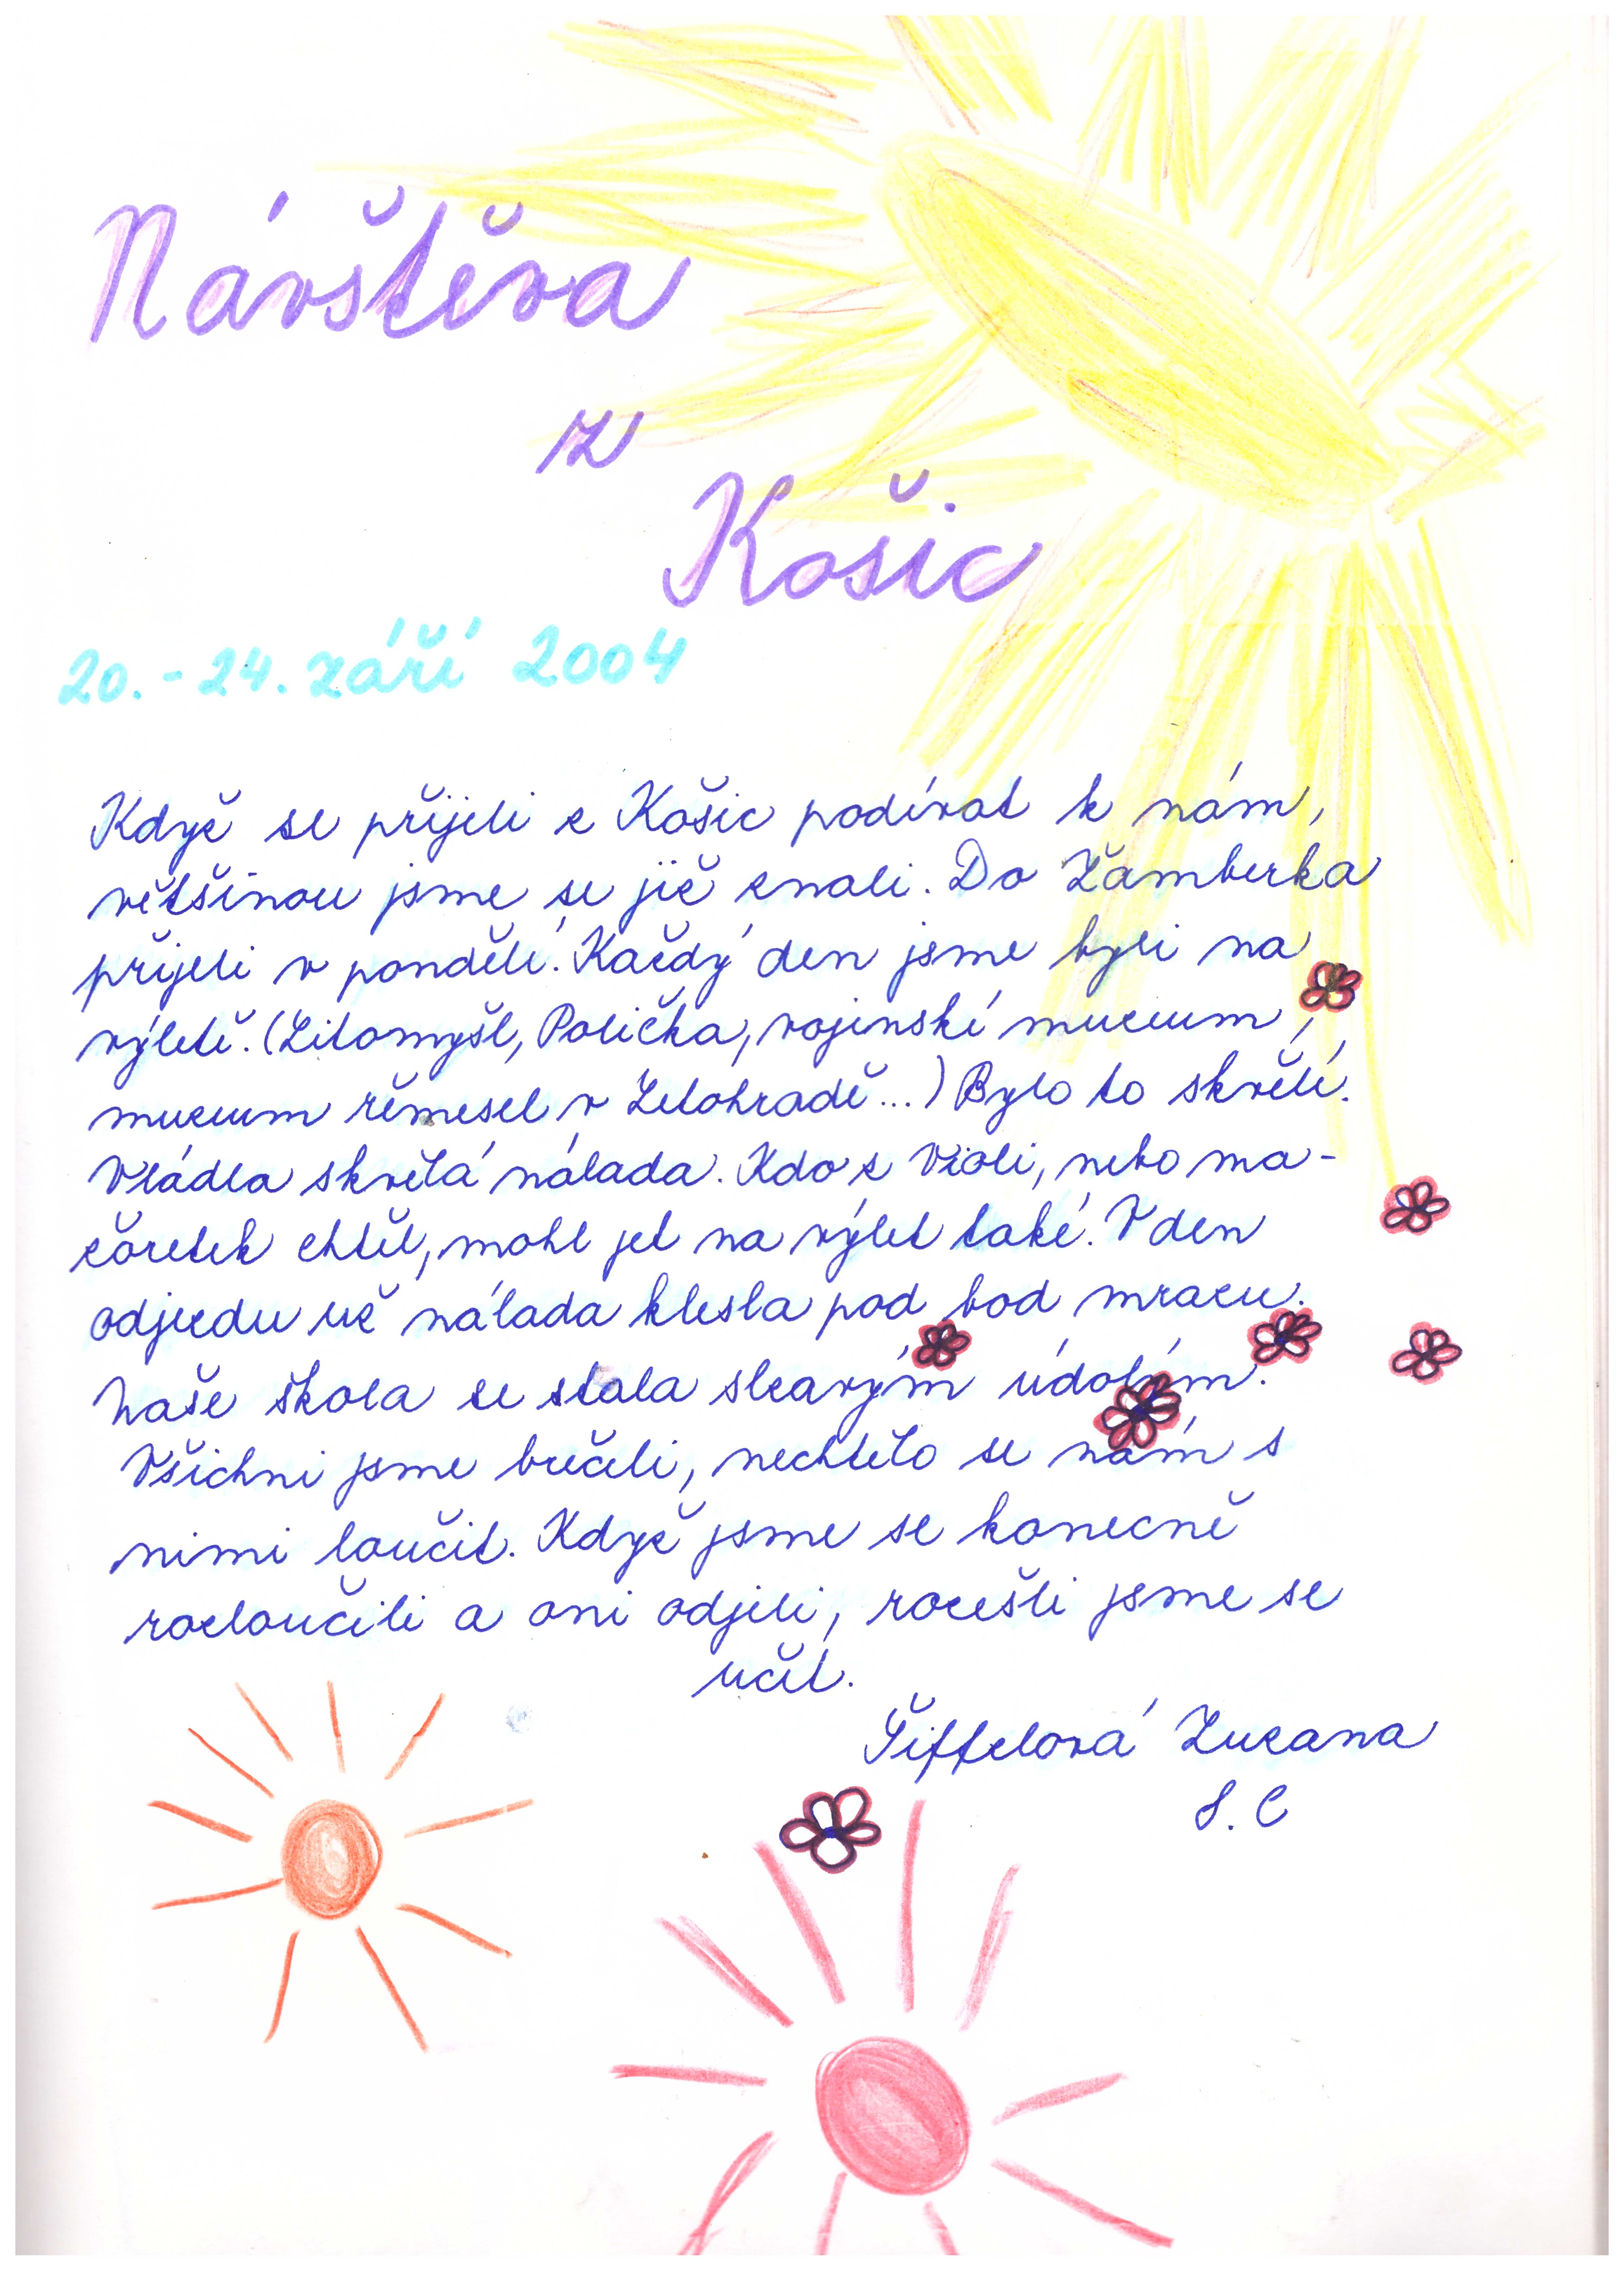 Návštěva
z
Košic
20. - 24. září 2004
Když se přijeli z Košic podívat k nám,
většinou jsme se již znali. Do Žamberka
přijeli v pondělí. Každý den jsme byli na
výletě. (Litomyšl, Polička, vojenské muzeum,
muzeum řemesel v Letohradě...) Bylo to skvělé.
Vládla skvělá nálada. Kdo z Violi, nebo ma-
žoretek chtěl, mohl jet na výlet také. V den
odjezdu už nálada klesla pod bod mrazu.
Naše škola se stala slzavým údolím.
Všichni jsme brečeli, nechtělo se nám s
nimi loučit. Když jsme se konečně
rozloučili a oni odjeli, rozešli jsme se
učit.
Šiffelová Zuzana
8. C